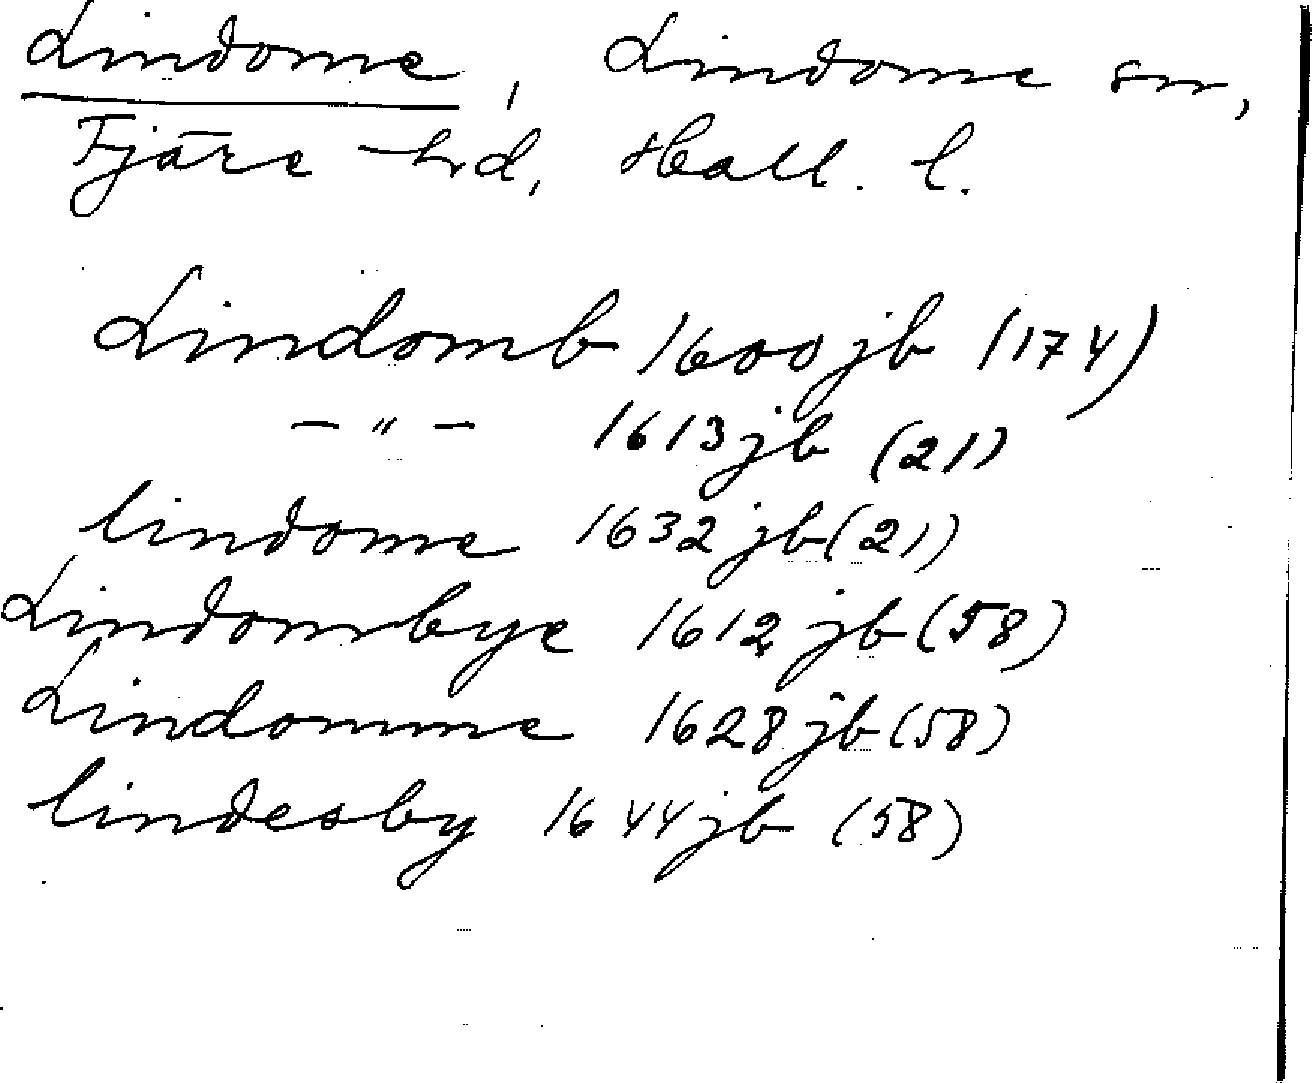 Lindome, Lindome sn,
Fjäre hd, Hall. l.
Lindomb 1600 jb (174)
— " — 1613 jb (21)
lindome 1632 jb (21)
Lindombye 1612 jb (58)
Lindomme 1628 jb (58)
lindesby 1644 jb (58)